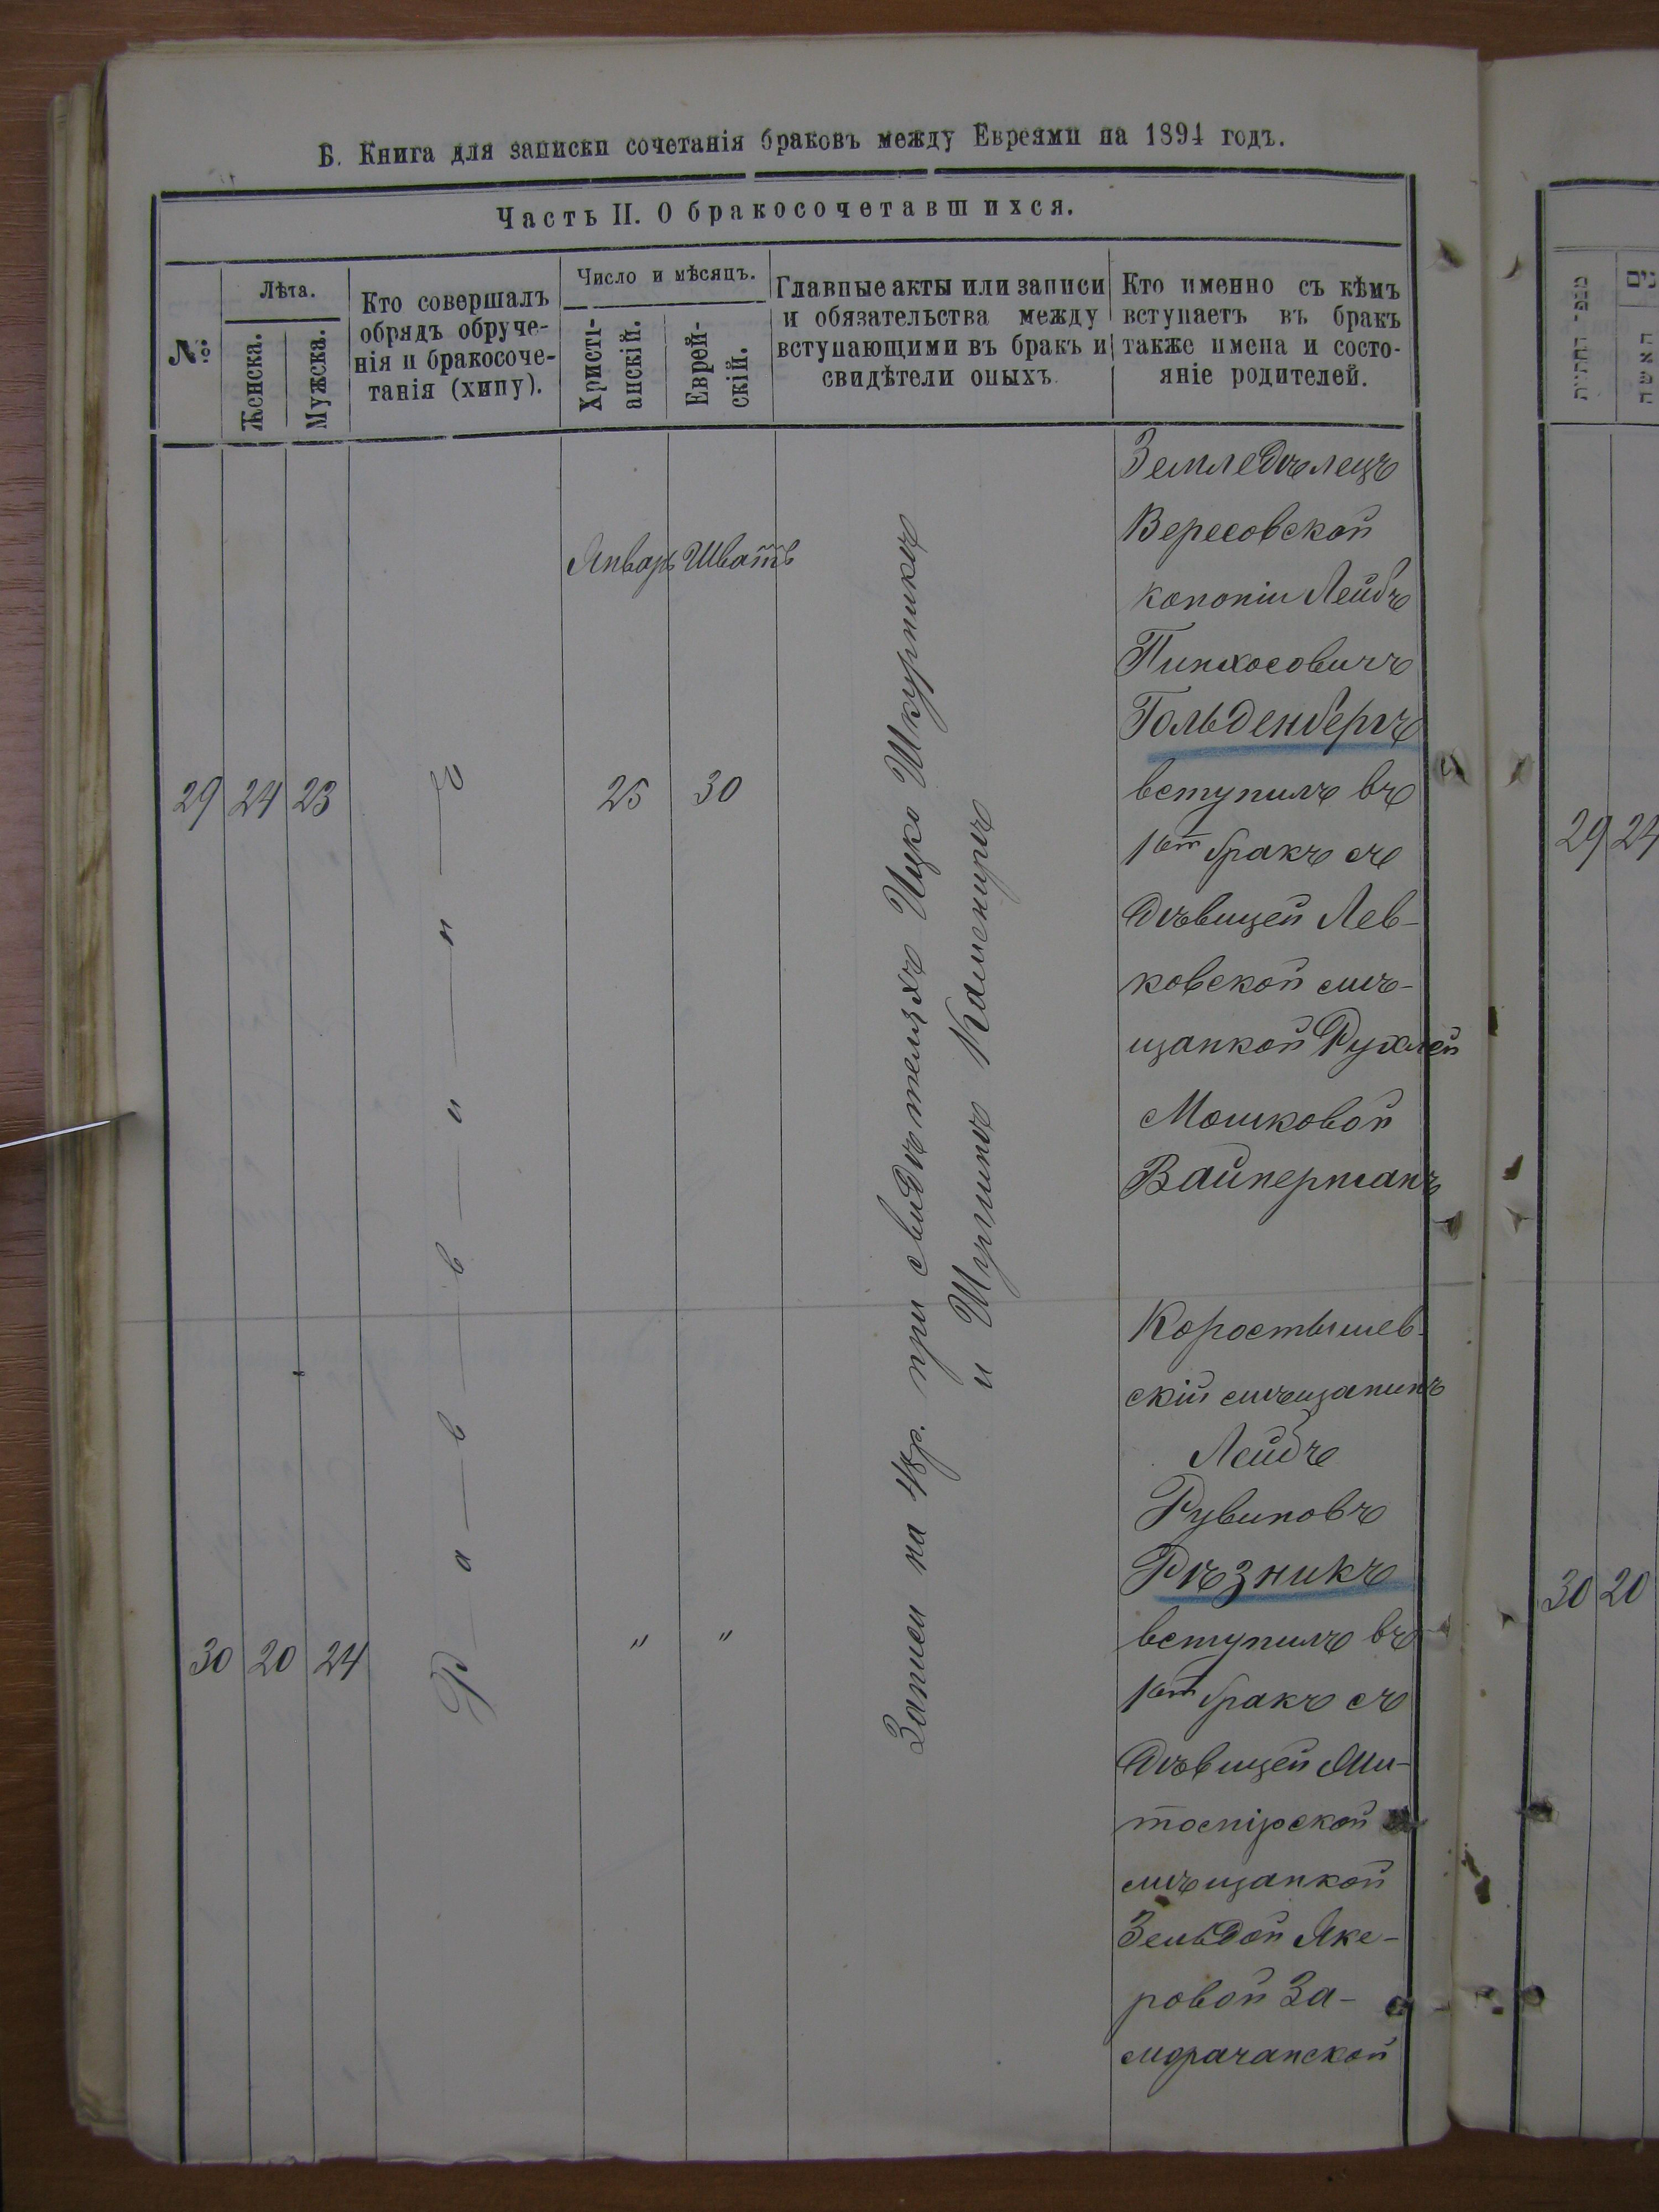 Б. Книга для записки сочетанія браковъ между Евреями на 1894 годъ.
Часть II. О бракосочетавшихся.
№
Лѣта.
Женска.
Мужска.
Кто совершалъ
обрядъ обруче-
нія и бракосоче-
танія (хипу).
Число и мѣсяцъ.
Христі-
анскій.
Еврей-
скій.
Главные акты или записи
и обязательства между
вступающими въ бракъ и
свидѣтели оныхъ.
Кто именно съ кѣмъ
вступаетъ въ бракъ
также имена и состо-
яніе родителей.
Январь Шватъ
29 24 23
25 30
Р—а—в—в—и—н—ъ
Записи на 48р. при свидѣтеляхъ Ицко Шкурникъ
и Шулимъ Камениръ
Земледѣлецъ
Вересовской
колоніи Лейбъ
Пинхосовичъ
Гольденбергъ
вступилъ въ
1ый бракъ съ
дѣвицей Лев-
ковской мѣ-
щанкой Рухлей
Мошковой
Вайнерманъ
30 20 24
" "
Коростышев-
скій мѣщанинъ
Лейбъ
Рувиновъ
Рѣзникъ
вступилъ въ
1ый бракъ съ
дѣвицей Жи-
томірской
мѣщанкой
Зельдой Янке-
ровой За-
морачанской
29 24
30 20